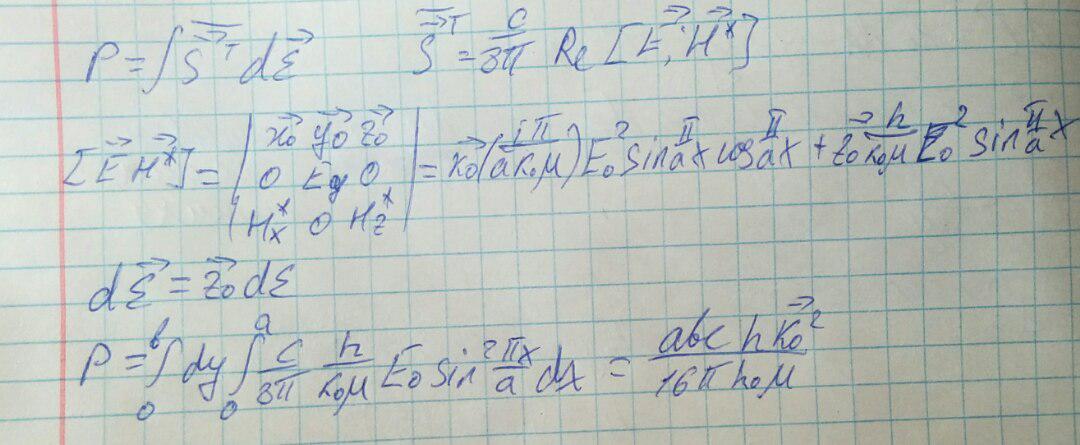 P = ∫ S⃗ᵀ dΣ⃗    S⃗ᵀ = c/8π Re [E⃗, H⃗*]
[E⃗ H⃗*] = | x⃗₀ y⃗₀ z⃗₀ | = x⃗₀(iπ/ak₀μ) E₀² sin π/a x cos π/a x + z⃗₀ h/k₀μ E₀² sin π/a x
| 0 Ey 0 |
| Hx* 0 Hz* |
dΣ⃗ = z⃗₀ dΣ
P = ∫₀ᵇ dy ∫₀ᵃ c/8π h/k₀μ E₀ sin² πx/a dx = abc h k⃗₀² / 16π h₀μ